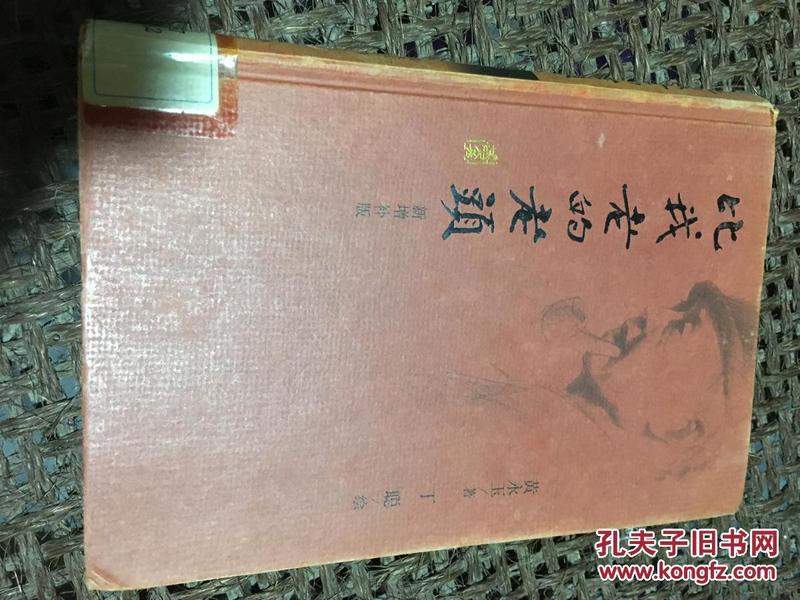 比我老的老頭
新增补版
黄永玉/著
丁聪/绘
孔夫子旧书网
www.kongfz.com